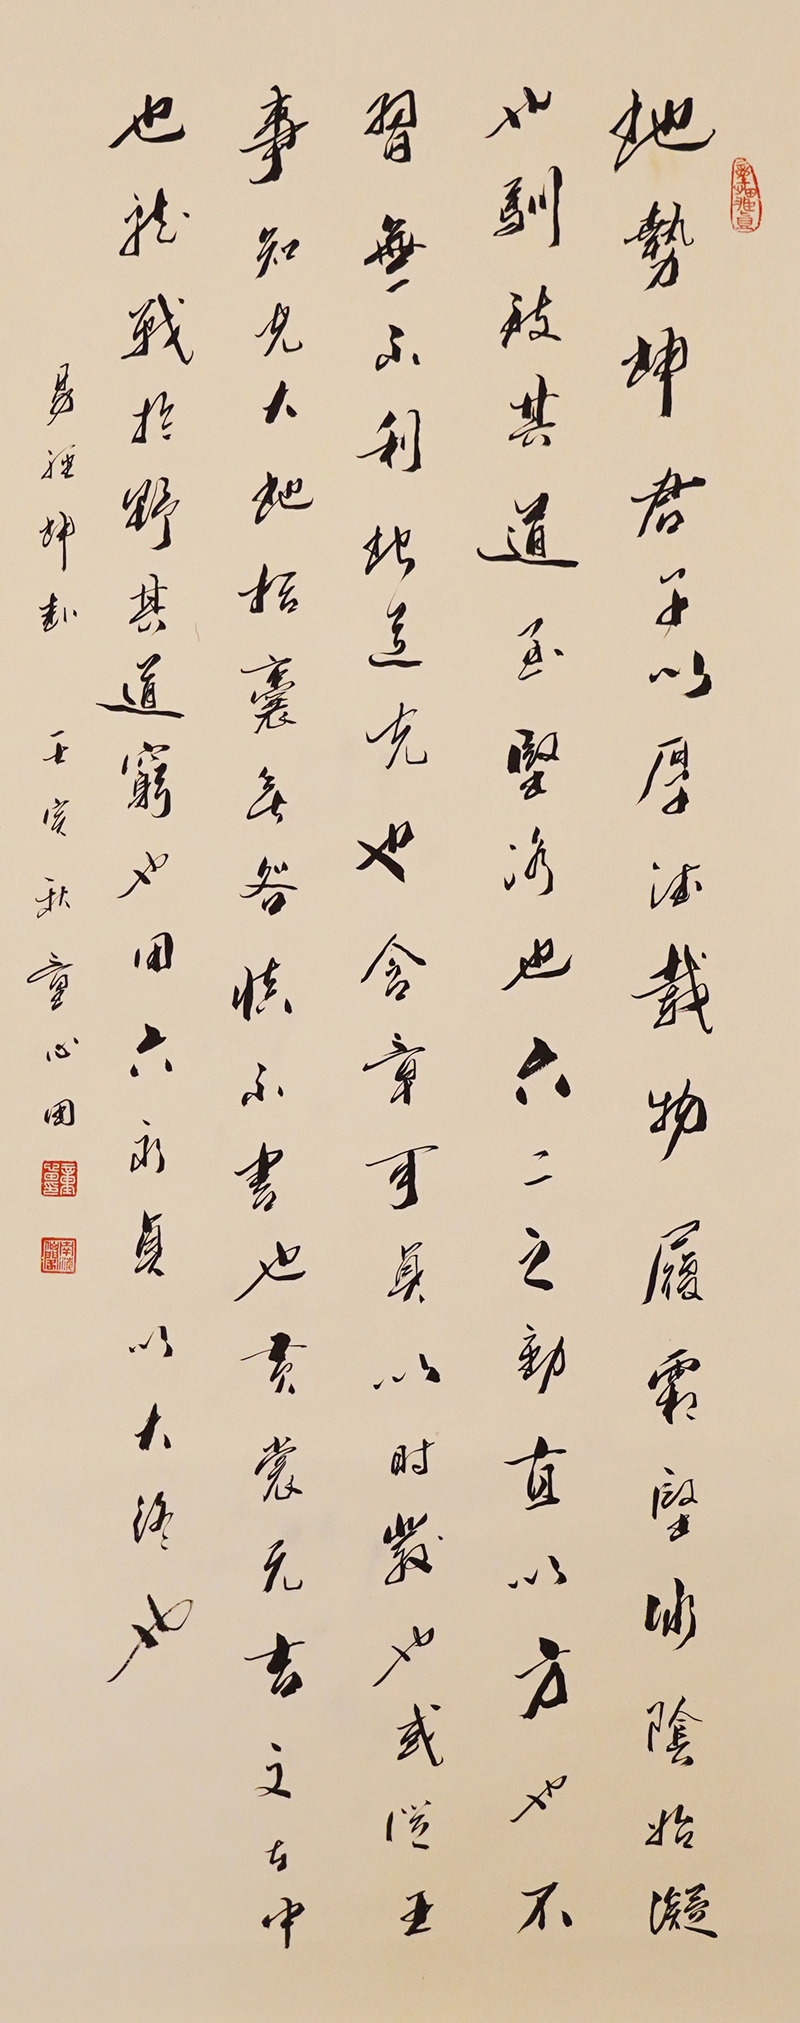 地勢坤君子以厚德載物履霜堅冰陰始凝
也馴致其道至堅冰也六二之動直以方也不
習無不利地道光也含章可貞以时發也或從王
事知光大也括囊無咎慎不害也黄裳元吉文在中
也龍戰於野其道窮也用六永貞以大終也
易經坤卦 壬寅秋童心田